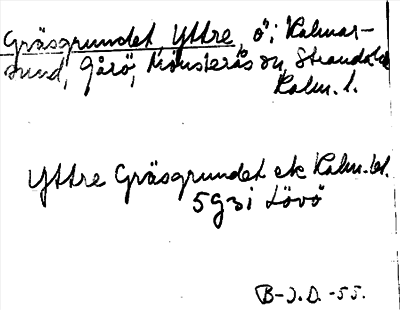 Gräsgrundet, Yttre, ö, i Kalmar-
sund, Mönsterås sn, Stranda hd
Kalm. l.
Yttre Gräsgrundet ek Kalm. bl.
5g3i Lövö
B-J.D. -55.